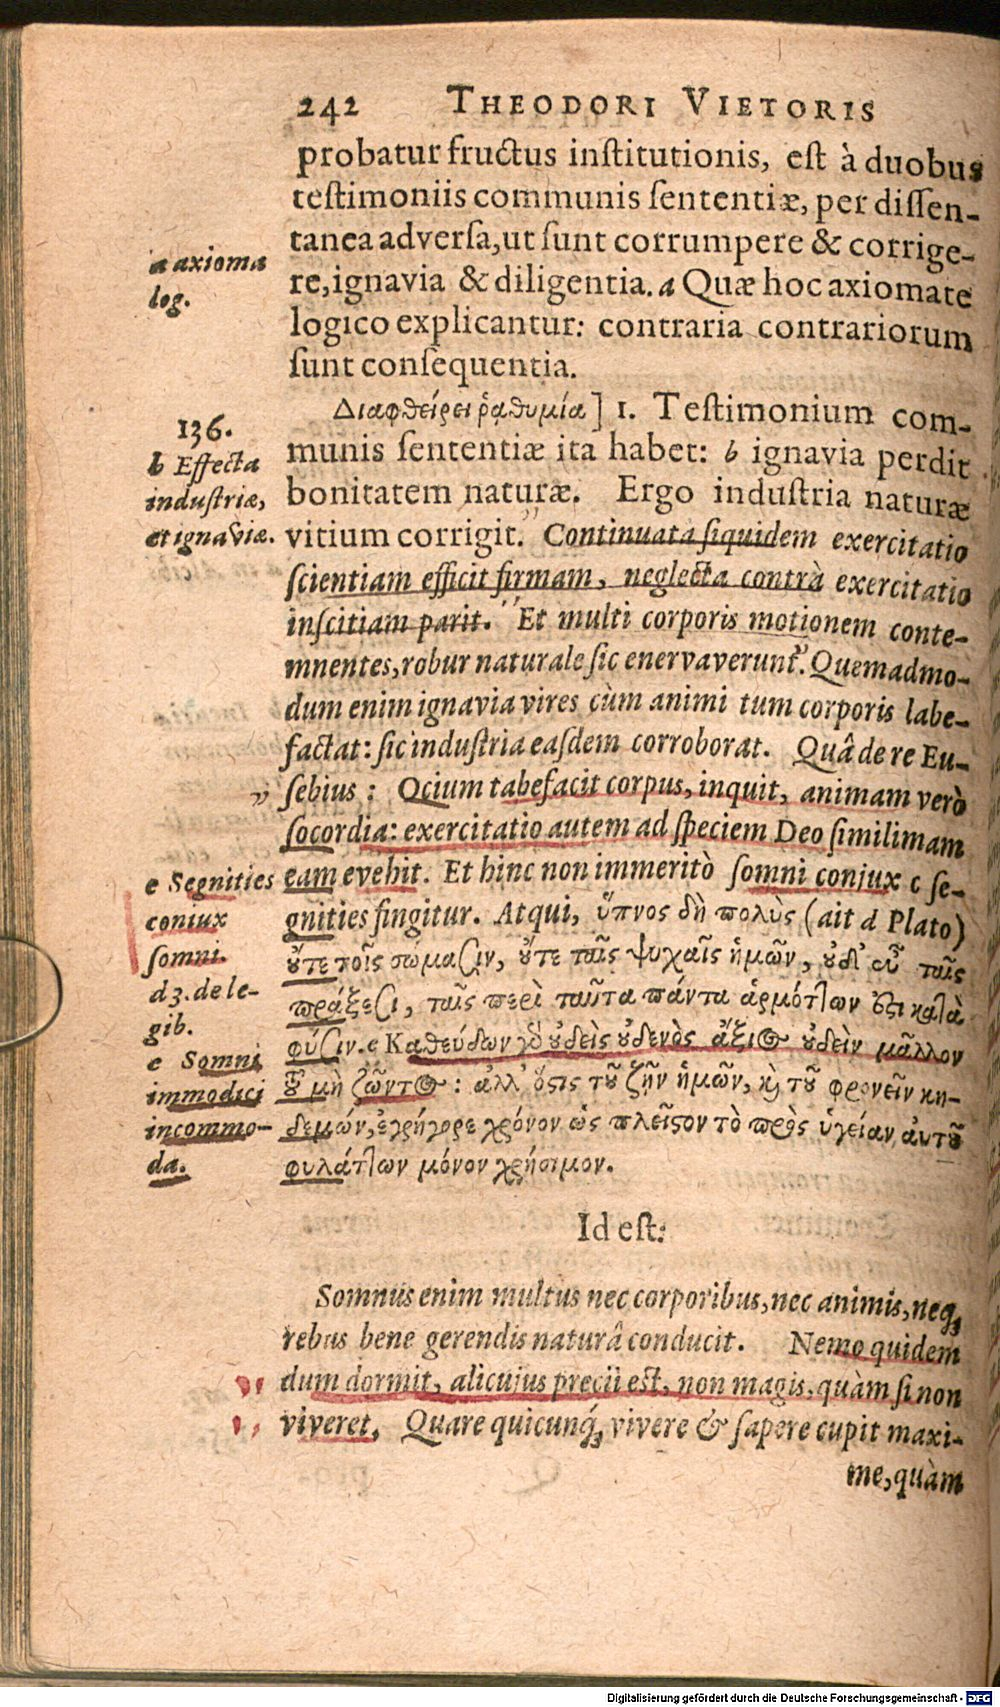 242 THEODORI VIETORIS
probatur fructus institutionis, est à duobus
testimoniis communis sententiæ, per dissen-
tanea adversa, ut sunt corrumpere & corrige-
a axioma
log.
re, ignavia & diligentia. a Quæ hoc axiomate
logico explicantur: contraria contrariorum
sunt consequentia.
136.
b Effecta
industriæ,
et ignaviæ.
Διαφθείρει ῥᾳθυμία] 1. Testimonium com-
munis sententiæ ita habet: b ignavia perdit
bonitatem naturæ. Ergo industria naturæ
vitium corrigit. Continuata siquidem exercitatio
scientiam efficit firmam, neglecta contrà exercitatio
inscitiam parit. Et multi corporis motionem conte-
mnentes, robur naturale sic enervaverunt. Quemadmo-
dum enim ignavia vires cùm animi tum corporis labe-
factat: sic industria easdem corroborat. Quâ de re Eu-
sebius: Ocium tabefacit corpus, inquit, animam verò
socordia: exercitatio autem ad speciem Deo similimam
e Segnities
coniux
somni.
d 3. de le-
gib.
e Somni
immodici
incommo-
da.
eam evehit. Et hinc non immeritò somni conjux c se-
gnities fingitur. Atqui, ὕπνος δὴ πολὺς (ait d Plato)
ὔτε τοῖς σώμασιν, ὔτε ταῖς ψυχαῖς ἡμῶν, ὐδ' εὖ ταῖς
πράξεσι, ταῖς περὶ ταῦτα πάντα ἁρμόττων ὅςι κατὰ
φύσιν. e Καθεύδων γὸ ὐδεὶς ὐδενὸς ἄξιος ὐδὲν μᾶλλον
τῦ μὴ ζῶντος: ἀλλ' ὅςις τῦ ζῆν ἡμῶν, κὶ τῦ φρονεῖν κη-
δεμών, ἐγρήγορε χρόνον ὡς πλεῖςον τὸ πρὸς ὑγείαν αὐτῦ
φυλάττων μόνον χρήσιμον.
Id est:
Somnus enim multus nec corporibus, nec animis, neq;
rebus bene gerendis naturâ conducit. Nemo quidem
dum dormit, alicujus precii est, non magis, quàm si non
viveret. Quare quicunq; vivere & sapere cupit maxi-
me, quàm
Digitalisierung gefördert durch die Deutsche Forschungsgemeinschaft - DFG